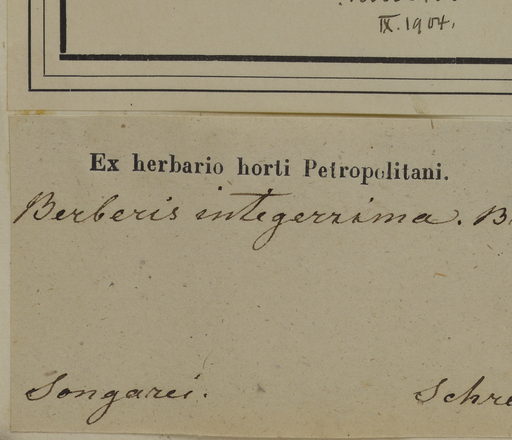 IX.1904.
Ex herbario horti Petropolitani.
Berberis integerrima. B
Songarei. Schre